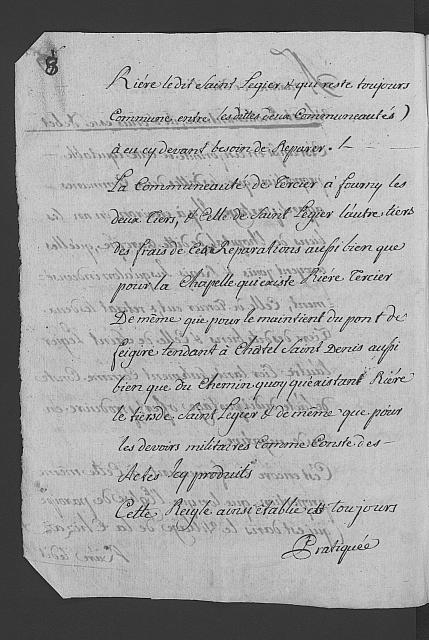 8
Riére ledit Saint Legier & qui reste toujours
Commune entre lesdittes deux Communeautés)
à eu cy devant besoin de Reparer. /.
La Communeauté de Tercier à fourny les
deux Tiers, & Celle de Saint Legier l'autre tiers
des frais de Ces Reparations aussi bien que
pour la Chapelle qui existe Riére Tercier
De même que pour le maintient du pont de
feigire tendant à Chatel Saint Denis aussi
bien que du Chemin quoy qu'existant Riére
le tiers de Saint Legier & de même que pour
les devoirs militaires comme Conste des
Actes Icy produits
Cette Reigle ainsi établie est toujours
Pratiquée